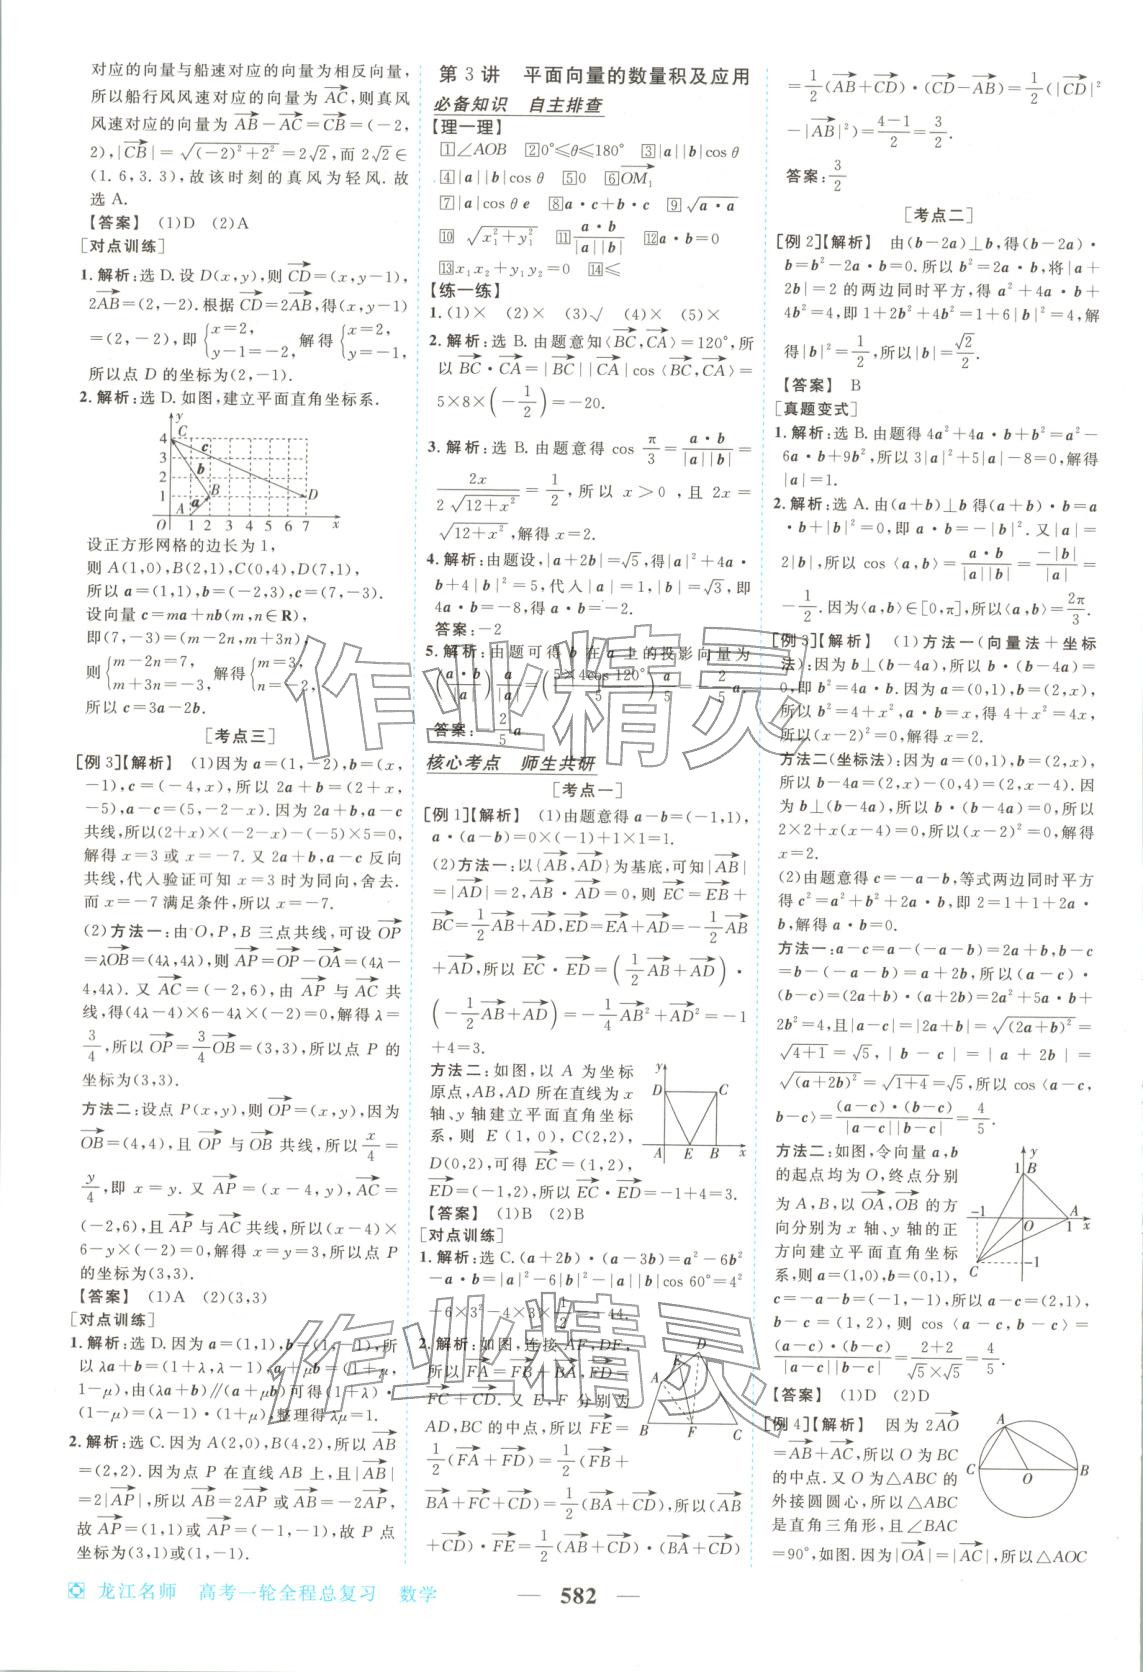 对应的向量与船速对应的向量为相反向量,
所以船行风风速对应的向量为AC,则真风
风速对应的向量为AB-AC=CB=(-2,
2),|CB|=√((-2)²+2²)=2√2,而 2√2∈
(1.6,3.3),故该时刻的真风为轻风.故
选A.
【答案】 (1)D (2)A
[对点训练]
1.解析:选D.设D(x,y),则CD=(x,y-1),
2AB=(2,-2).根据CD=2AB,得(x,y-1)
=(2,-2),即{x=2, y-1=-2, 解得{x=2, y=-1.
所以点D的坐标为(2,-1).
2.解析:选D.如图,建立平面直角坐标系.
y
C
4
3
2
1
A
B
D
a
b
c
O 1 2 3 4 5 6 7 x
设正方形网格的边长为1,
则A(1,0),B(2,1),C(0,4),D(7,1),
所以a=(1,1),b=(-2,3),c=(7,-3).
设向量c=ma+nb(m,n∈R),
即(7,-3)=(m-2n,m+3n),
则{m-2n=7, m+3n=-3, 解得{m=3, n=-2.
所以c=3a-2b.
[考点三]
[例3]【解析】 (1)因为a=(1,-2),b=(x,
-1),c=(-4,x),所以2a+b=(2+x,
-5),a-c=(5,-2-x).因为2a+b,a-c
共线,所以(2+x)×(-2-x)-(-5)×5=0,
解得x=3或x=-7.又2a+b,a-c反向
共线,代入验证可知x=3时为同向,舍去.
而x=-7满足条件,所以x=-7.
(2)方法一:由O,P,B三点共线,可设OP
=λOB=(4λ,4λ),则AP=OP-OA=(4λ-
4,4λ).又AC=(-2,6),由AP与AC共
线,得(4λ-4)×6-4λ×(-2)=0,解得λ=
3/4,所以OP=3/4OB=(3,3),所以点P的
坐标为(3,3).
方法二:设点P(x,y),则OP=(x,y),因为
OB=(4,4),且OP与OB共线,所以x/4=
y/4,即x=y.又AP=(x-4,y),AC=
(-2,6),且AP与AC共线,所以(x-4)×
6-y×(-2)=0,解得x=y=3,所以点P
的坐标为(3,3).
【答案】 (1)A (2)(3,3)
[对点训练]
1.解析:选D.因为a=(1,1),b=(1,-1),所
以λa+b=(1+λ,λ-1),a+μb=(1+μ,
1-μ),由(λa+b)∥(a+μb)可得(1+λ)·
(1-μ)=(λ-1)·(1+μ),整理得λμ=1.
2.解析:选C.因为A(2,0),B(4,2),所以AB
=(2,2).因为点P在直线AB上,且|AB|
=2|AP|,所以AB=2AP或AB=-2AP,
故AP=(1,1)或AP=(-1,-1),故P点
坐标为(3,1)或(1,-1).
第3讲 平面向量的数量积及应用
必备知识 自主排查
【理一理】
1∠AOB 2 0°≤θ≤180° 3|a||b|cosθ
4|a||b|cosθ 5 0 6 OM₁
7|a|cosθe 8 a·c+b·c 9 √(a·a)
10 √(x₁²+y₁²) 11 a·b/|a||b| 12 a·b=0
13 x₁x₂+y₁y₂=0 14 ≤
【练一练】
1.(1)× (2)× (3)√ (4)× (5)×
2.解析:选B.由题意知⟨BC,CA⟩=120°,所
以BC·CA=|BC||CA|cos⟨BC,CA⟩=
5×8×(-1/2)=-20.
3.解析:选B.由题意得cos π/3=a·b/|a||b|=
2x/2√(12+x²)=1/2,所以x>0,且2x=
√(12+x²),解得x=2.
4.解析:由题设,|a+2b|=√5,得|a|²+4a·
b+4|b|²=5,代入|a|=1,|b|=√3,即
4a·b=-8,得a·b=-2.
答案:-2
5.解析:由题可得b在a上的投影向量为
(a·b/|a|)a/|a|=(5×4cos120°/5)a/5=-2/5a.
答案:-2/5a
核心考点 师生共研
[考点一]
[例1]【解析】 (1)由题意得a-b=(-1,1),
a·(a-b)=0×(-1)+1×1=1.
(2)方法一:以{AB,AD}为基底,可知|AB|
=|AD|=2,AB·AD=0,则EC=EB+
BC=1/2AB+AD,ED=EA+AD=-1/2AB
+AD,所以EC·ED=(1/2AB+AD)·
(-1/2AB+AD)=-1/4AB²+AD²=-1
+4=3.
方法二:如图,以A为坐标
原点,AB,AD所在直线为x
轴、y轴建立平面直角坐标
系,则E(1,0),C(2,2),
D(0,2),可得EC=(1,2),
ED=(-1,2),所以EC·ED=-1+4=3.
y
D
C
A E B x
【答案】 (1)B (2)B
[对点训练]
1.解析:选C.(a+2b)·(a-3b)=a²-6b²
-a·b=|a|²-6|b|²-|a||b|cos60°=4²
-6×3²-4×3×1/2=-44.
2.解析:如图,连接AF,DF,
所以FA=FB+BA,FD=
FC+CD.又E,F分别为
AD,BC的中点,所以FE=
1/2(FA+FD)=1/2(FB+
BA+FC+CD)=1/2(BA+CD),所以(AB
+CD)·FE=1/2(AB+CD)·(BA+CD)
D
E
A
B F C
=1/2(AB+CD)·(CD-AB)=1/2(|CD|²
-|AB|²)=(4-1)/2=3/2.
答案:3/2
[考点二]
[例2]【解析】 由(b-2a)⊥b,得(b-2a)·
b=b²-2a·b=0.所以b²=2a·b,将|a+
2b|=2的两边同时平方,得a²+4a·b+
4b²=4,即1+2b²+4b²=1+6|b|²=4,解
得|b|²=1/2,所以|b|=√2/2.
【答案】 B
[真题变式]
1.解析:选B.由题意得4a²+4a·b+b²=a²-
6a·b+9b²,所以3|a|²+5|a|-8=0,解得
|a|=1.
2.解析:选A.由(a+b)⊥b得(a+b)·b=a
·b+|b|²=0,即a·b=-|b|².又|a|=
2|b|,所以cos⟨a,b⟩=a·b/|a||b|=-|b|/|a|=
-1/2.因为⟨a,b⟩∈[0,π],所以⟨a,b⟩=2π/3.
[例3]【解析】 (1)方法一(向量法+坐标
法):因为b⊥(b-4a),所以b·(b-4a)=
0,即b²=4a·b.因为a=(0,1),b=(2,x),
所以b²=4+x²,a·b=x,得4+x²=4x,
所以(x-2)²=0,解得x=2.
方法二(坐标法):因为a=(0,1),b=(2,x),
所以b-4a=(2,x)-(0,4)=(2,x-4).因
为b⊥(b-4a),所以b·(b-4a)=0,所以
2×2+x(x-4)=0,所以(x-2)²=0,解得
x=2.
(2)由题意得c=-a-b,等式两边同时平方
得c²=a²+b²+2a·b,即2=1+1+2a·
b,解得a·b=0.
方法一:a-c=a-(-a-b)=2a+b,b-c
=b-(-a-b)=a+2b,所以(a-c)·
(b-c)=(2a+b)·(a+2b)=2a²+5a·b+
2b²=4,且|a-c|=|2a+b|=√((2a+b)²)=
√(4+1)=√5,|b-c|=|a+2b|=
√((a+2b)²)=√(1+4)=√5,所以cos⟨a-c,
b-c⟩=(a-c)·(b-c)/|a-c||b-c|=4/5.
方法二:如图,令向量a,b
的起点均为O,终点分别
为A,B,以OA,OB的方
向分别为x轴、y轴的正
方向建立平面直角坐标
系,则a=(1,0),b=(0,1),
c=-a-b=(-1,-1),所以a-c=(2,1),
b-c=(1,2),则cos⟨a-c,b-c⟩=
(a-c)·(b-c)/|a-c||b-c|=(2+2)/(√5×√5)=4/5.
y
1 B
-1
O
A
1 x
C
-1
【答案】 (1)D (2)D
[例4]【解析】 因为2AO
=AB+AC,所以O为BC
的中点.又O为△ABC的
外接圆圆心,所以△ABC
是直角三角形,且∠BAC
=90°,如图.因为|OA|=|AC|,所以△AOC
A
C O B
龙江名师 高考一轮全程总复习 数学
— 582 —
作业精灵
作业精灵